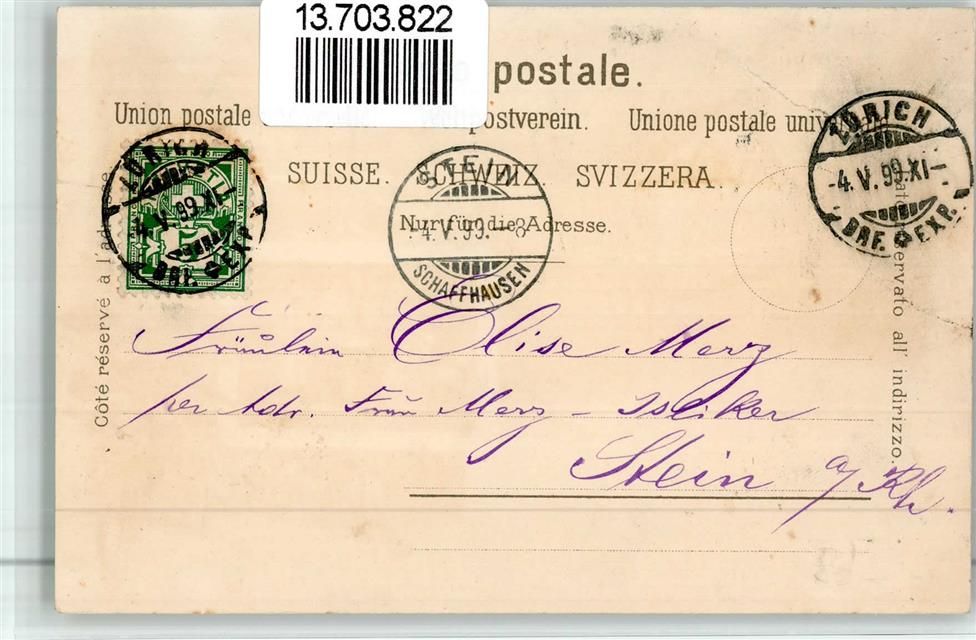 13.703.822
postale.
Union postale postverein. Unione postale univ
SUISSE. SCHWEIZ. SVIZZERA.
Nur für die Adresse.
Côté réservé à l'adresse
Lato riservato all' indirizzo.
ZÜRICH
4.V.99.XI-
BRF. EXP.
STEIN
4.V.99.-8
SCHAFFHAUSEN
ZÜRICH
-4.V.99.XI-
BRF. EXP.
Fräulein Elise Merz
per Adr. Frau Merz - Isliker
Stein a/Rh.